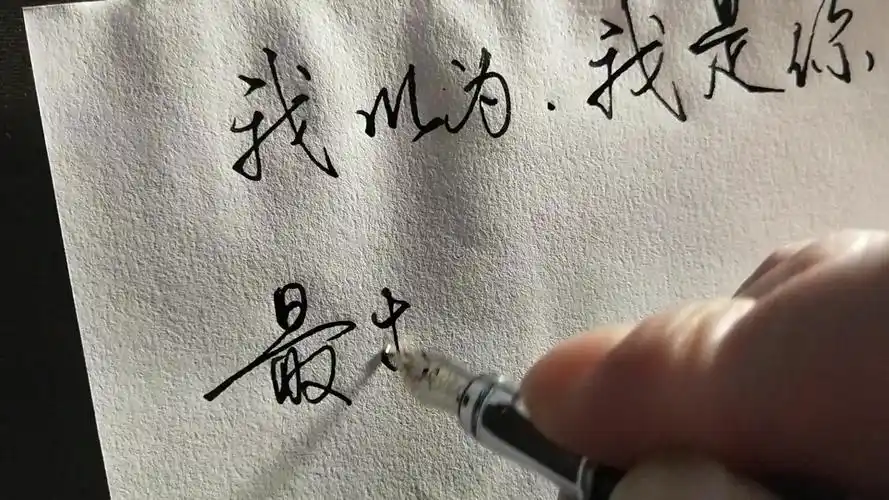 我以为.我是你
最